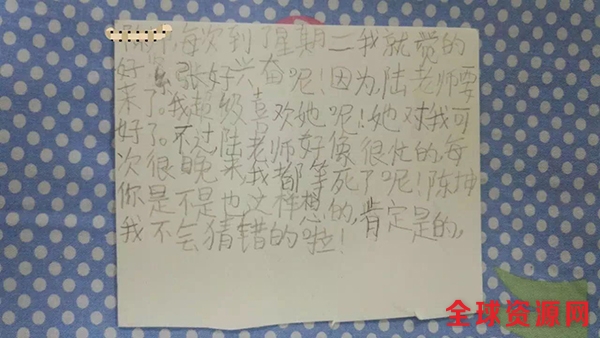 每次到了星期二我就觉的
好紧张好兴奋呢!因为,陆老师要
来了。我超级喜欢她呢!她对我可
好了。不过陆老师好像很忙的,每
次很晚来我都等死了呢!陈坤
你是不是也这样想的,肯定是的,
我不会猜错的啦!
全球资源网